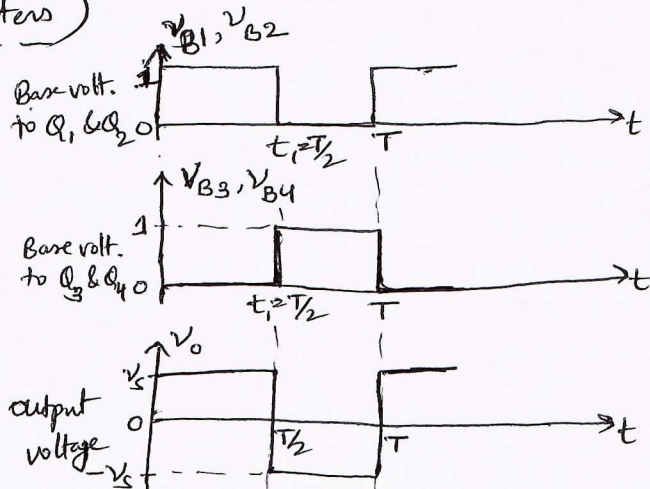 ters)
v_B1, v_B2
1
Base volt.
to Q1 & Q2 0
t1 = T/2
T
t
v_B3, v_B4
1
Base volt.
to Q3 & Q4 0
t1 = T/2
T
t
v_o
v_s
output
0
voltage
T/2
T
t
-v_s